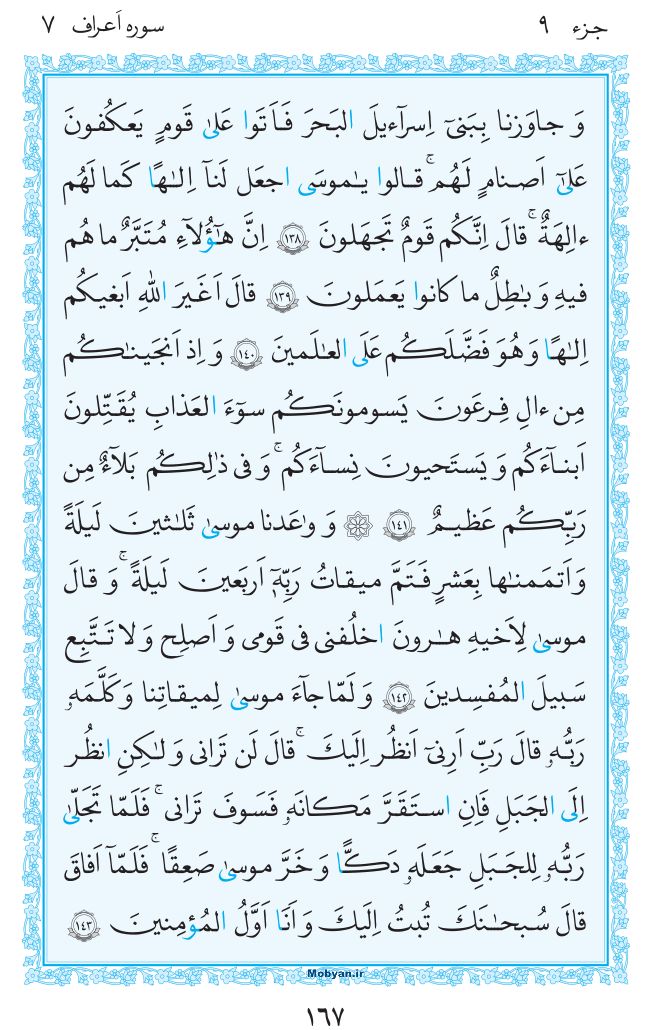 جزء ۹
سوره اَعراف ۷
وَ جاوَزنا بِبَنیٓ اِسرآءیلَ البَحرَ فَاَتَوا عَلیٰ قَومٍ یَعکُفونَ
عَلیٰٓ اَصنامٍ لَهُم ۚ قالوا یـٰموسَی اجعَل لَنآ اِلـٰهًا کَما لَهُم
ءالِهَةٌ ۚ قالَ اِنَّکُم قَومٌ تَجهَلونَ ﴿۱۳۸﴾ اِنَّ هـٰٓؤُلآءِ مُتَبَّرٌ ما هُم
فیهِ وَ بـٰطِلٌ ما کانوا یَعمَلونَ ﴿۱۳۹﴾ قالَ اَغَیرَ اللّٰهِ اَبغیکُم
اِلـٰهًا وَ هُوَ فَضَّلَکُم عَلَی العـٰلَمینَ ﴿۱۴۰﴾ وَ اِذ اَنجَینـٰکُم
مِن ءالِ فِرعَونَ یَسومونَکُم سوٓءَ العَذابِ یُقَتِّلونَ
اَبنآءَکُم وَ یَستَحیونَ نِسآءَکُم ۚ وَ فی ذٰلِکُم بَلآءٌ مِن
رَبِّکُم عَظیمٌ ﴿۱۴۱﴾ ۞ وَ وٰعَدنا موسیٰ ثَلـٰثینَ لَیلَةً
وَ اَتمَمنـٰها بِعَشرٍ فَتَمَّ میقاتُ رَبِّهٖٓ اَربَعینَ لَیلَةً ۚ وَ قالَ
موسیٰ لِاَخیهِ هـٰرونَ اخلُفنی فی قَومی وَ اَصلِح وَ لا تَتَّبِع
سَبیلَ المُفسِدینَ ﴿۱۴۲﴾ وَ لَمّا جآءَ موسیٰ لِمیقاتِنا وَ کَلَّمَهٗ
رَبُّهٗ قالَ رَبِّ اَرِنیٓ اَنظُر اِلَیکَ ۚ قالَ لَن تَرانی وَ لـٰکِنِ انظُر
اِلَی الجَبَلِ فَاِنِ استَقَرَّ مَکانَهٗ فَسَوفَ تَرانی ۚ فَلَمّا تَجَلّیٰ
رَبُّهٗ لِلجَبَلِ جَعَلَهٗ دَکًّا وَ خَرَّ موسیٰ صَعِقًا ۚ فَلَمّآ اَفاقَ
قالَ سُبحـٰنَکَ تُبتُ اِلَیکَ وَ اَنَا اَوَّلُ المُؤمِنینَ ﴿۱۴۳﴾
Mobyan.ir
۱۶۷